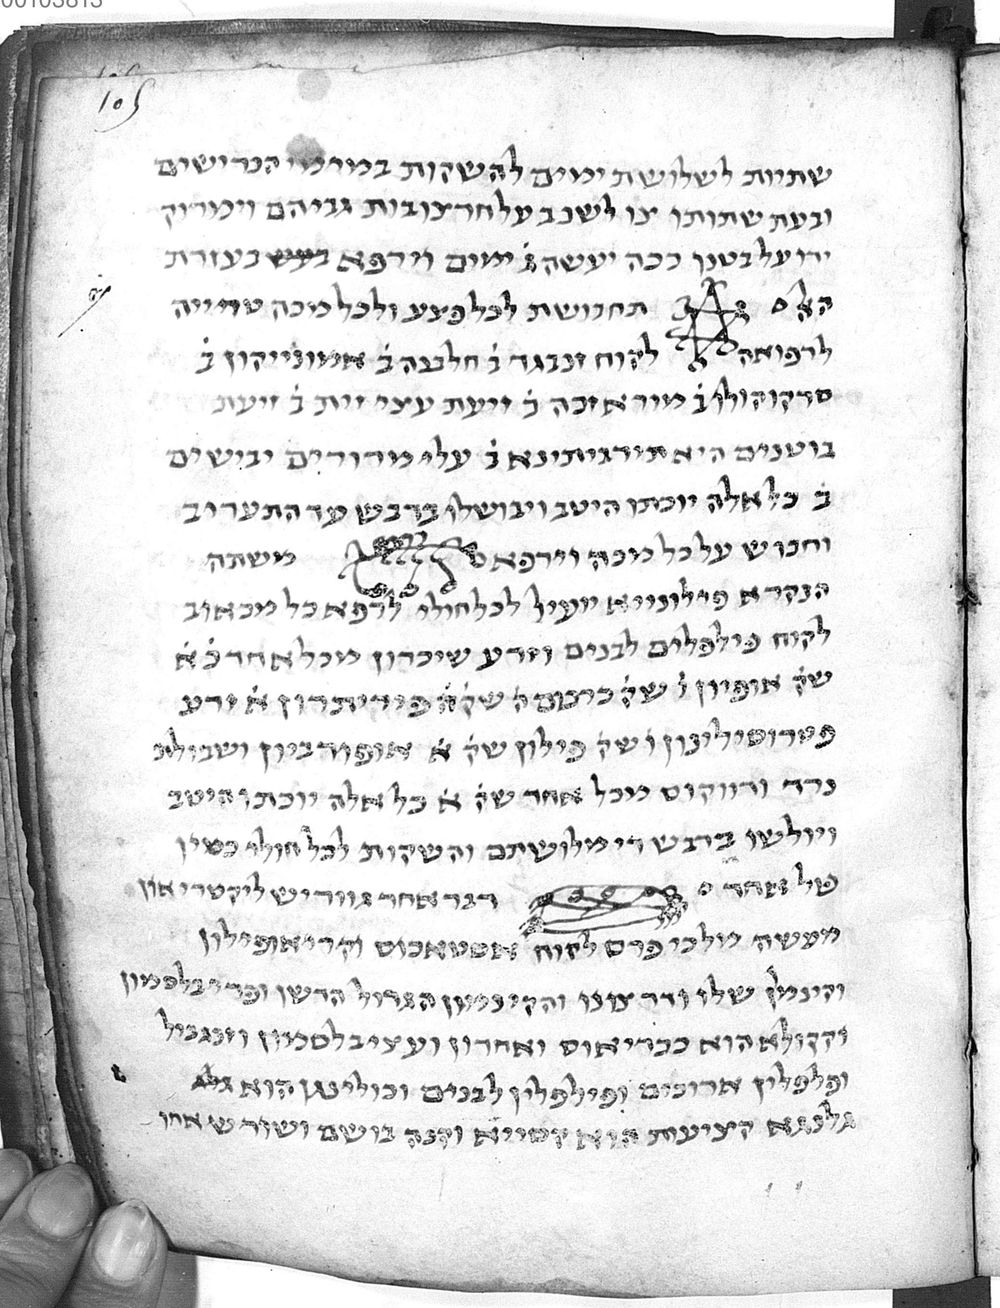 105
שתיות לשלושת ימים להשקות במימי הגרישים
ובעת שתותו יצו לשכב על חרצובות גביהם וימרוק
ידו על בטנך ככה יעשה ג̇ ימים וירפא בעזרת
הא̇ל תחבושת לכל פצע ולכל מכה טרייה
לרפואה לקוח זנגבר ב̇ חלבנה ב̇ אמונייקון ב̇
סרקוקולו ב̇ מור א זכה ב̇ זיעת עצי זית ב̇ זיעת
בוטנים היא תירביתינא ב̇ עלי מרורים יבישים
ב̇ כל אלה יוכתו היטב ויבושלו בדבש עד התערוב
וחבוש על כל מכה וירפא משתה
הנקרא פילונייא יועיל לכל חולי לרפא כל מכאוב
לקוח פילפלים לבנים וזרע שיכרון מכל אחד כ̇א̇
שק̇ אופיון י̇ שק̇ כרכום ה̇ שק̇ פיריתרון א̇ זרע
פטרוסילינון י̇ שק̇ פילון שק̇ א̇ אופורביון ושבולת
נרד ודווקוס מכל אחד שק̇ א̇ כל אלה יוכתו היטב
ויולשו בדבש די מלושתם והשקות לכל חולי כמין
פול אחד דבר אחר גווריש ליקטריאון
מעשה מלכי פרס לקוח אסטאכוס וקריאופילון
וקינמון שלו ודרצונו והקינמון הגדול הדשן ופרי בלסמון
וקקולא הוא ככריאוס ואחרון ועצי בלסמון וזנגביל
ופלפלין ארוכים ופילפלין לבנים וכולינגן הוא
גלנגא קציעות הוא קסייא וקנה בושם ושור ש אחו